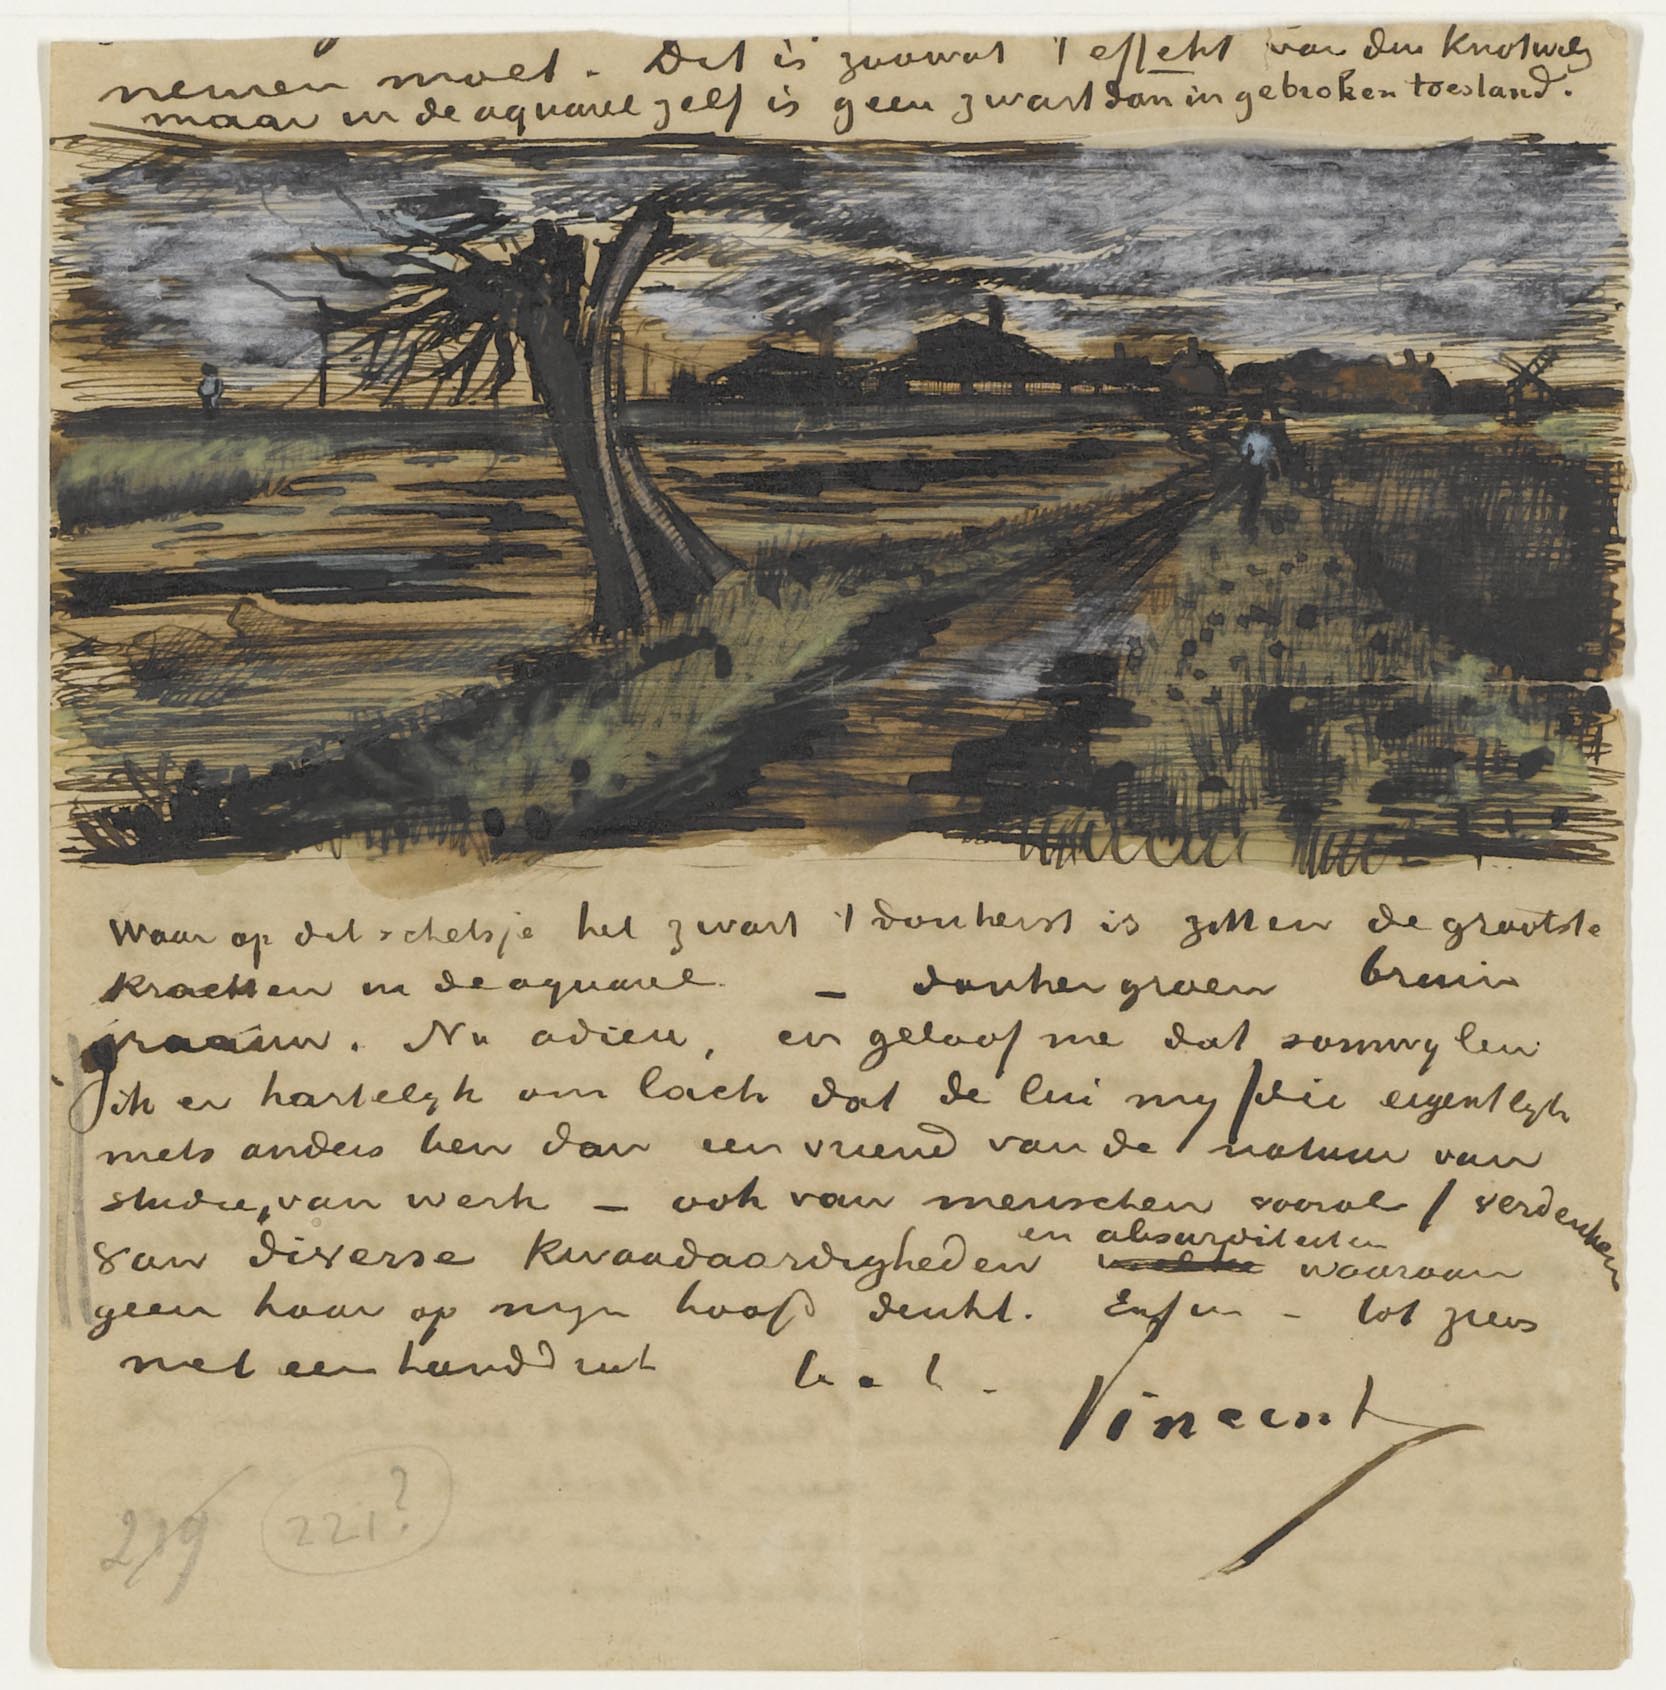 nemen moet. Dit is zoowat 't effekt van den knotwilg
maar in de aquarel zelf is geen zwart dan in gebroken toestand.
Waar op dit schetsje het zwart 't donkerst is zitten de grootste
krachten in de aquarel — donkergroen bruin
graauw. Nu adieu, en geloof me dat somwijlen
ik er hartelijk om lach dat de lui mij /die eigentlijk
niets anders ben dan een vriend van de natuur van
studie, van werk — ook van menschen vooral/ verdenken
van diverse kwaadaardigheden en absurditeiten welke waaraan
geen haar op mijn hoofd denkt. Enfin – tot ziens
met een handdruk
Vincent
219 221?